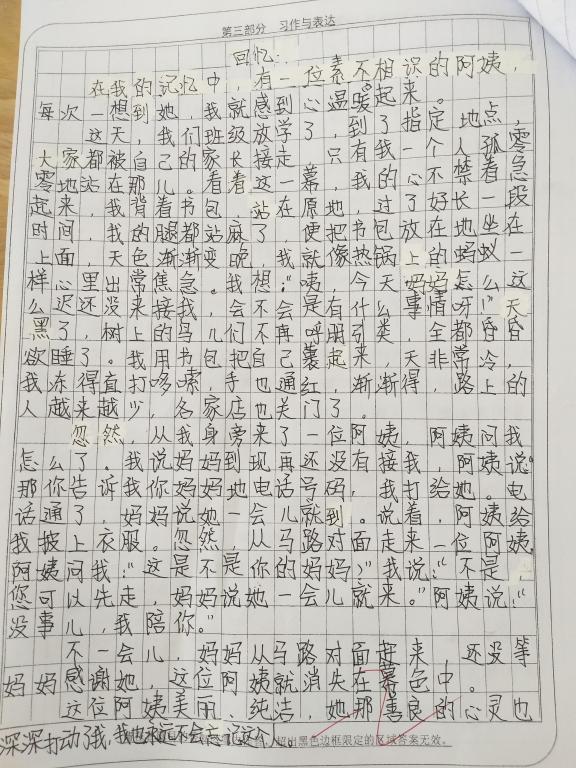 第三部分 习作与表达
回忆:
在我的记忆中，有一位素不相识的阿姨，
每次一想到她，我就感到心温暖起来。
这天，我们班级放学了，到了指定地点，
大家都被自己的家长接走 只有我一个人孤零
零地站在那儿。看着这一幕，我的心不禁着急
起来，我背着书包，站在原地，过了好长一段
时间，我的腿都站麻了，便把书包放在地坐在
上面，天色渐渐变晚，我就像热锅上的蚂蚁一
样心里出常焦急。我想:“咦，今天妈妈怎么这
么迟还没来接我，会不会是有什么事情呀！”天
黑了，树上的鸟儿们不再呼朋引类，全都昏昏
欲睡了。我用书包把自己蓑起来，天非常冷，
我冻得直打哆嗦，手也通红，渐渐得，路上的
人越来越少，各家店也关门了。
忽然，从我身旁来了一位阿姨，阿姨问我
怎么了。我说妈妈到现再还没有接我，阿姨说。
那你告诉我你妈妈地电话号码，我打给她。电
话通了，妈妈说她一会儿就到。说着，阿姨给
我披上衣服。忽然，从马路对面走来一位阿姨，
阿姨问我:“这是不是你的妈妈？”我说:“不是，
您可以先走，妈妈说她一会儿就来。”阿姨说:“
没事儿，我陪你。”
不一会儿，妈妈从马路对面赶来，还没等
妈妈感谢她，这位阿姨就消失在暮色中。
这位阿姨美丽、纯洁，她那善良的心灵也
深深打动了我，我也永远不会忘记这个人。
超出黑色边框限定的区域答案无效。